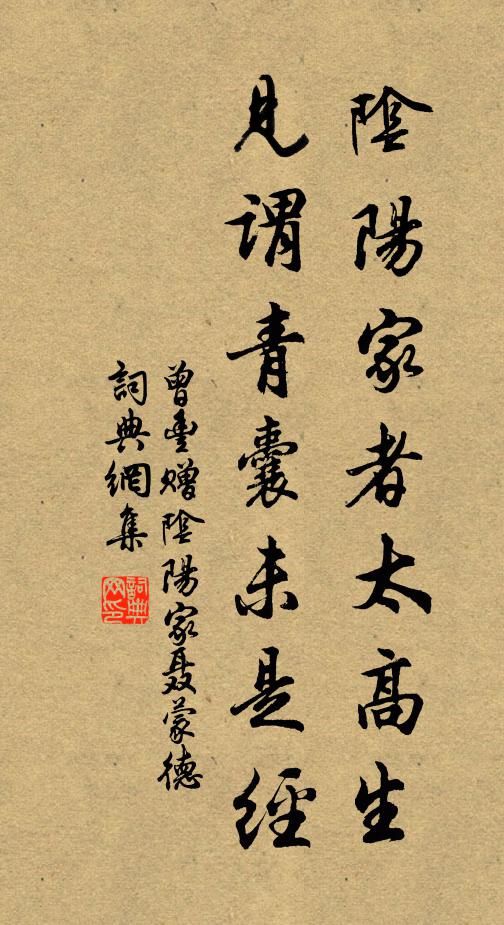 陰陽家者太高生
見謂青囊未是經
曾豐贈陰陽家聶蒙德
詞典網集
詞典網印